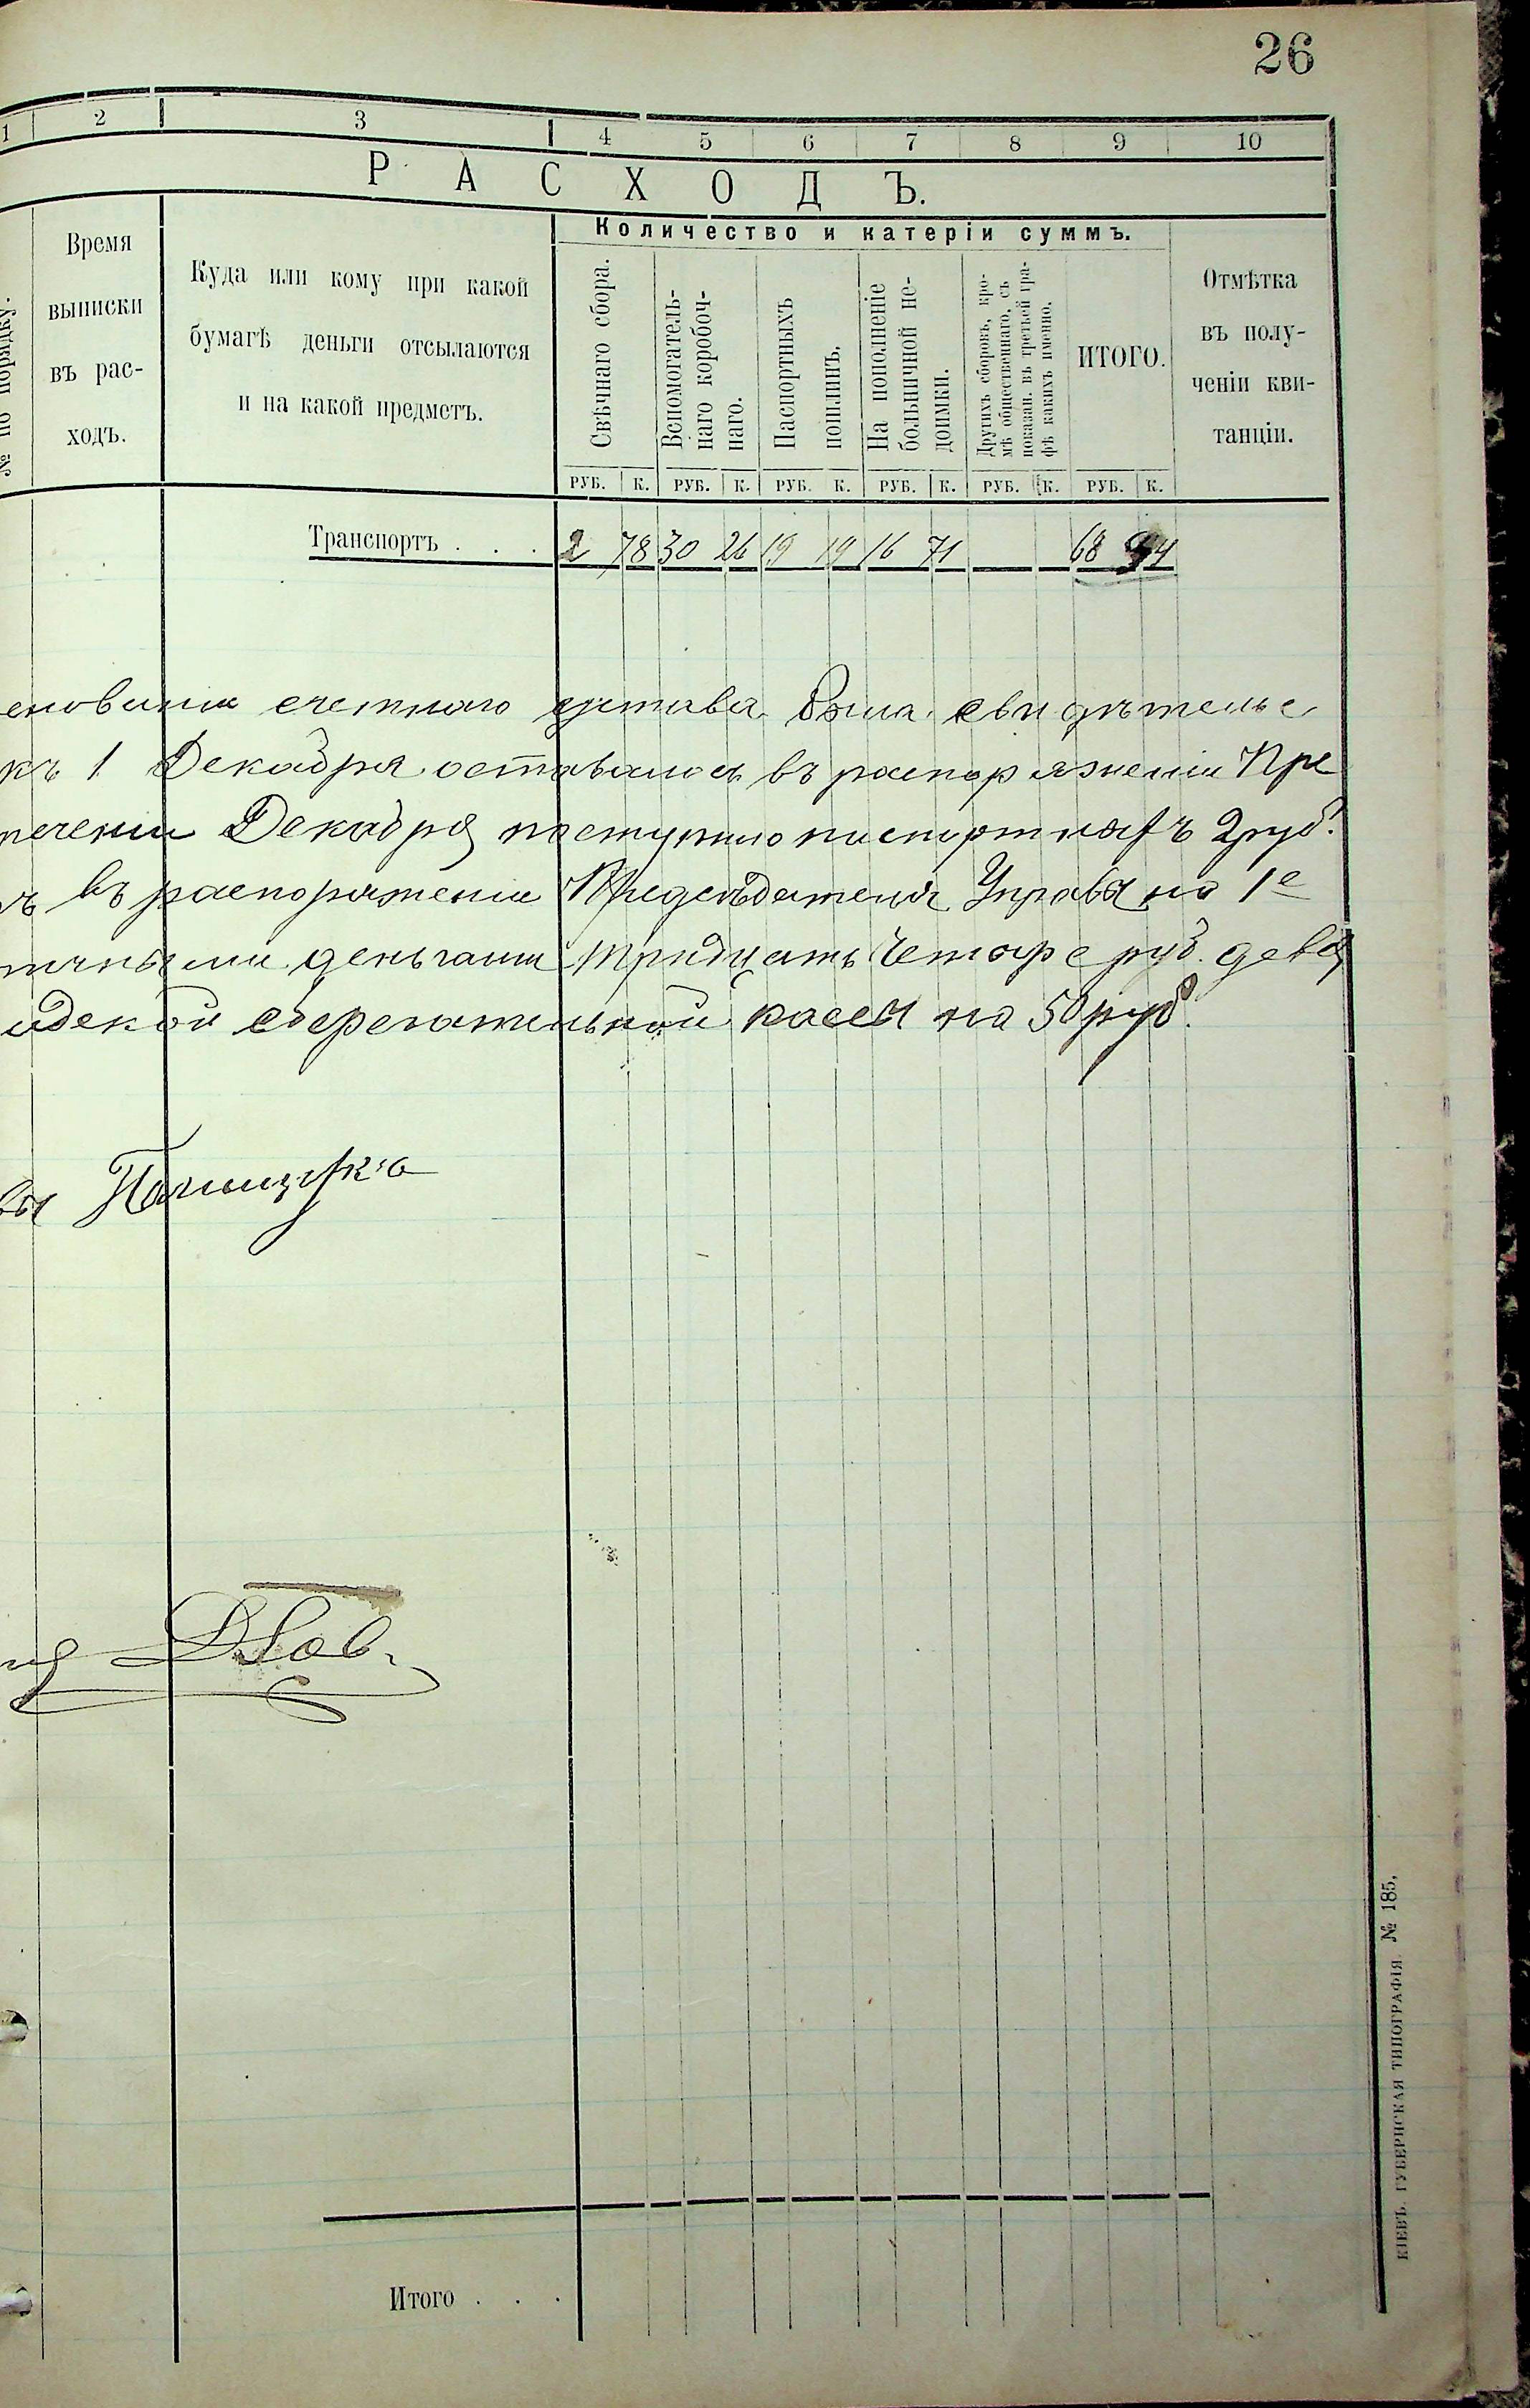 26
1 2 3 4 5 6 7 8 9 10
РАСХОДЪ.
№ по порядку.
Время
выписки
въ рас-
ходъ.
Куда или кому при какой
бумагѣ деньги отсылаются
и на какой предметъ.
Количество и катеріи суммъ.
Свѣчнаго сбора.
Вспомогатель-
наго коробоч-
наго.
Паспортныхъ
пошлинъ.
На пополненіе
больничной не-
доимки.
Другихъ сборовъ, кро-
мѣ общественнаго, съ
показан. въ третьей гра-
фѣ какихъ именно.
ИТОГО.
Отмѣтка
въ полу-
ченіи кви-
танціи.
РУБ. К. РУБ. К. РУБ. К. РУБ. К. РУБ. К. РУБ. К.
Транспортъ . . . 2 78 30 26 19 19 16 71 68 94
еновании счетнаго устава была свидѣтельс
къ 1 Декабря оставалось въ распоряжении Пре
течении Декабря поступило паспортныхъ 2 руб.
ъ въ распоряжении Предсѣдателя Управы на 1е
личными деньгами тридцать четыре руб. девя
адской сберегательной кассы на 50 руб.
вы
Итого . . .
КІЕВЪ. ГУБЕРНСКАЯ ТИПОГРАФІЯ. № 185,